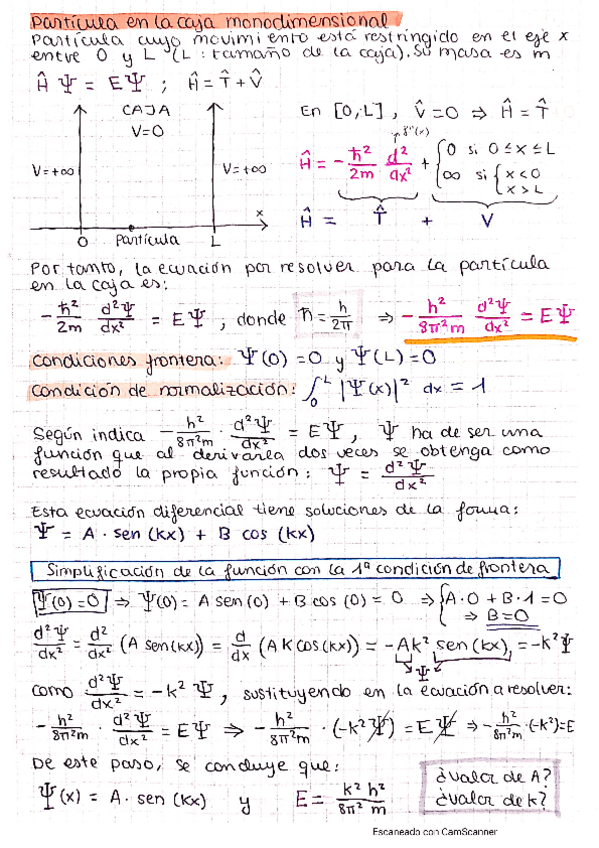 Partícula en la caja monodimensional
Partícula cuyo movimiento está restringido en el eje x
entre 0 y L (L: tamaño de la caja). Su masa es m
Ĥ Ψ = EΨ ; Ĥ = T̂ + V̂
CAJA
V=0
V=+∞
V=+∞
x
0
Partícula
L
En [0,L], V̂=0 ⇒ Ĥ = T̂
f''(x)
Ĥ = - ħ²/2m d²/dx² + { 0 si 0≤x≤L
∞ si { x<0
x>L
Ĥ = T̂ + V
Por tanto, la ecuación por resolver para la partícula
en la caja es:
- ħ²/2m d²Ψ/dx² = EΨ, donde ħ = h/2π ⇒ - h²/8π²m d²Ψ/dx² = EΨ
Condiciones frontera: Ψ(0)=0 y Ψ(L)=0
Condición de normalización: ∫₀ᴸ |Ψ(x)|² dx = 1
Según indica - h²/8π²m · d²Ψ/dx² = EΨ, Ψ ha de ser una
función que al derivarla dos veces se obtenga como
resultado la propia función: Ψ = d²Ψ/dx²
Esta ecuación diferencial tiene soluciones de la forma:
Ψ = A · sen (kx) + B cos (kx)
Simplificación de la función con la 1ª condición de frontera
Ψ(0)=0 ⇒ Ψ(0) = A sen(0) + B cos (0) = 0 ⇒ { A·0 + B·1 = 0
⇒ B=0
d²Ψ/dx² = d²/dx² (A sen(kx)) = d/dx (A K cos(kx)) = -Ak² sen (kx) = -k²Ψ
Ψ
como d²Ψ/dx² = -k² Ψ, sustituyendo en la ecuación a resolver:
- h²/8π²m · d²Ψ/dx² = EΨ ⇒ - h²/8π²m · (-k²Ψ) = EΨ ⇒ - h²/8π²m · (-k²)=E
De este paso, se concluye que:
Ψ(x) = A · sen (kx) y E = k² h²/8π² m
¿Valor de A?
¿Valor de k?
Escaneado con CamScanner